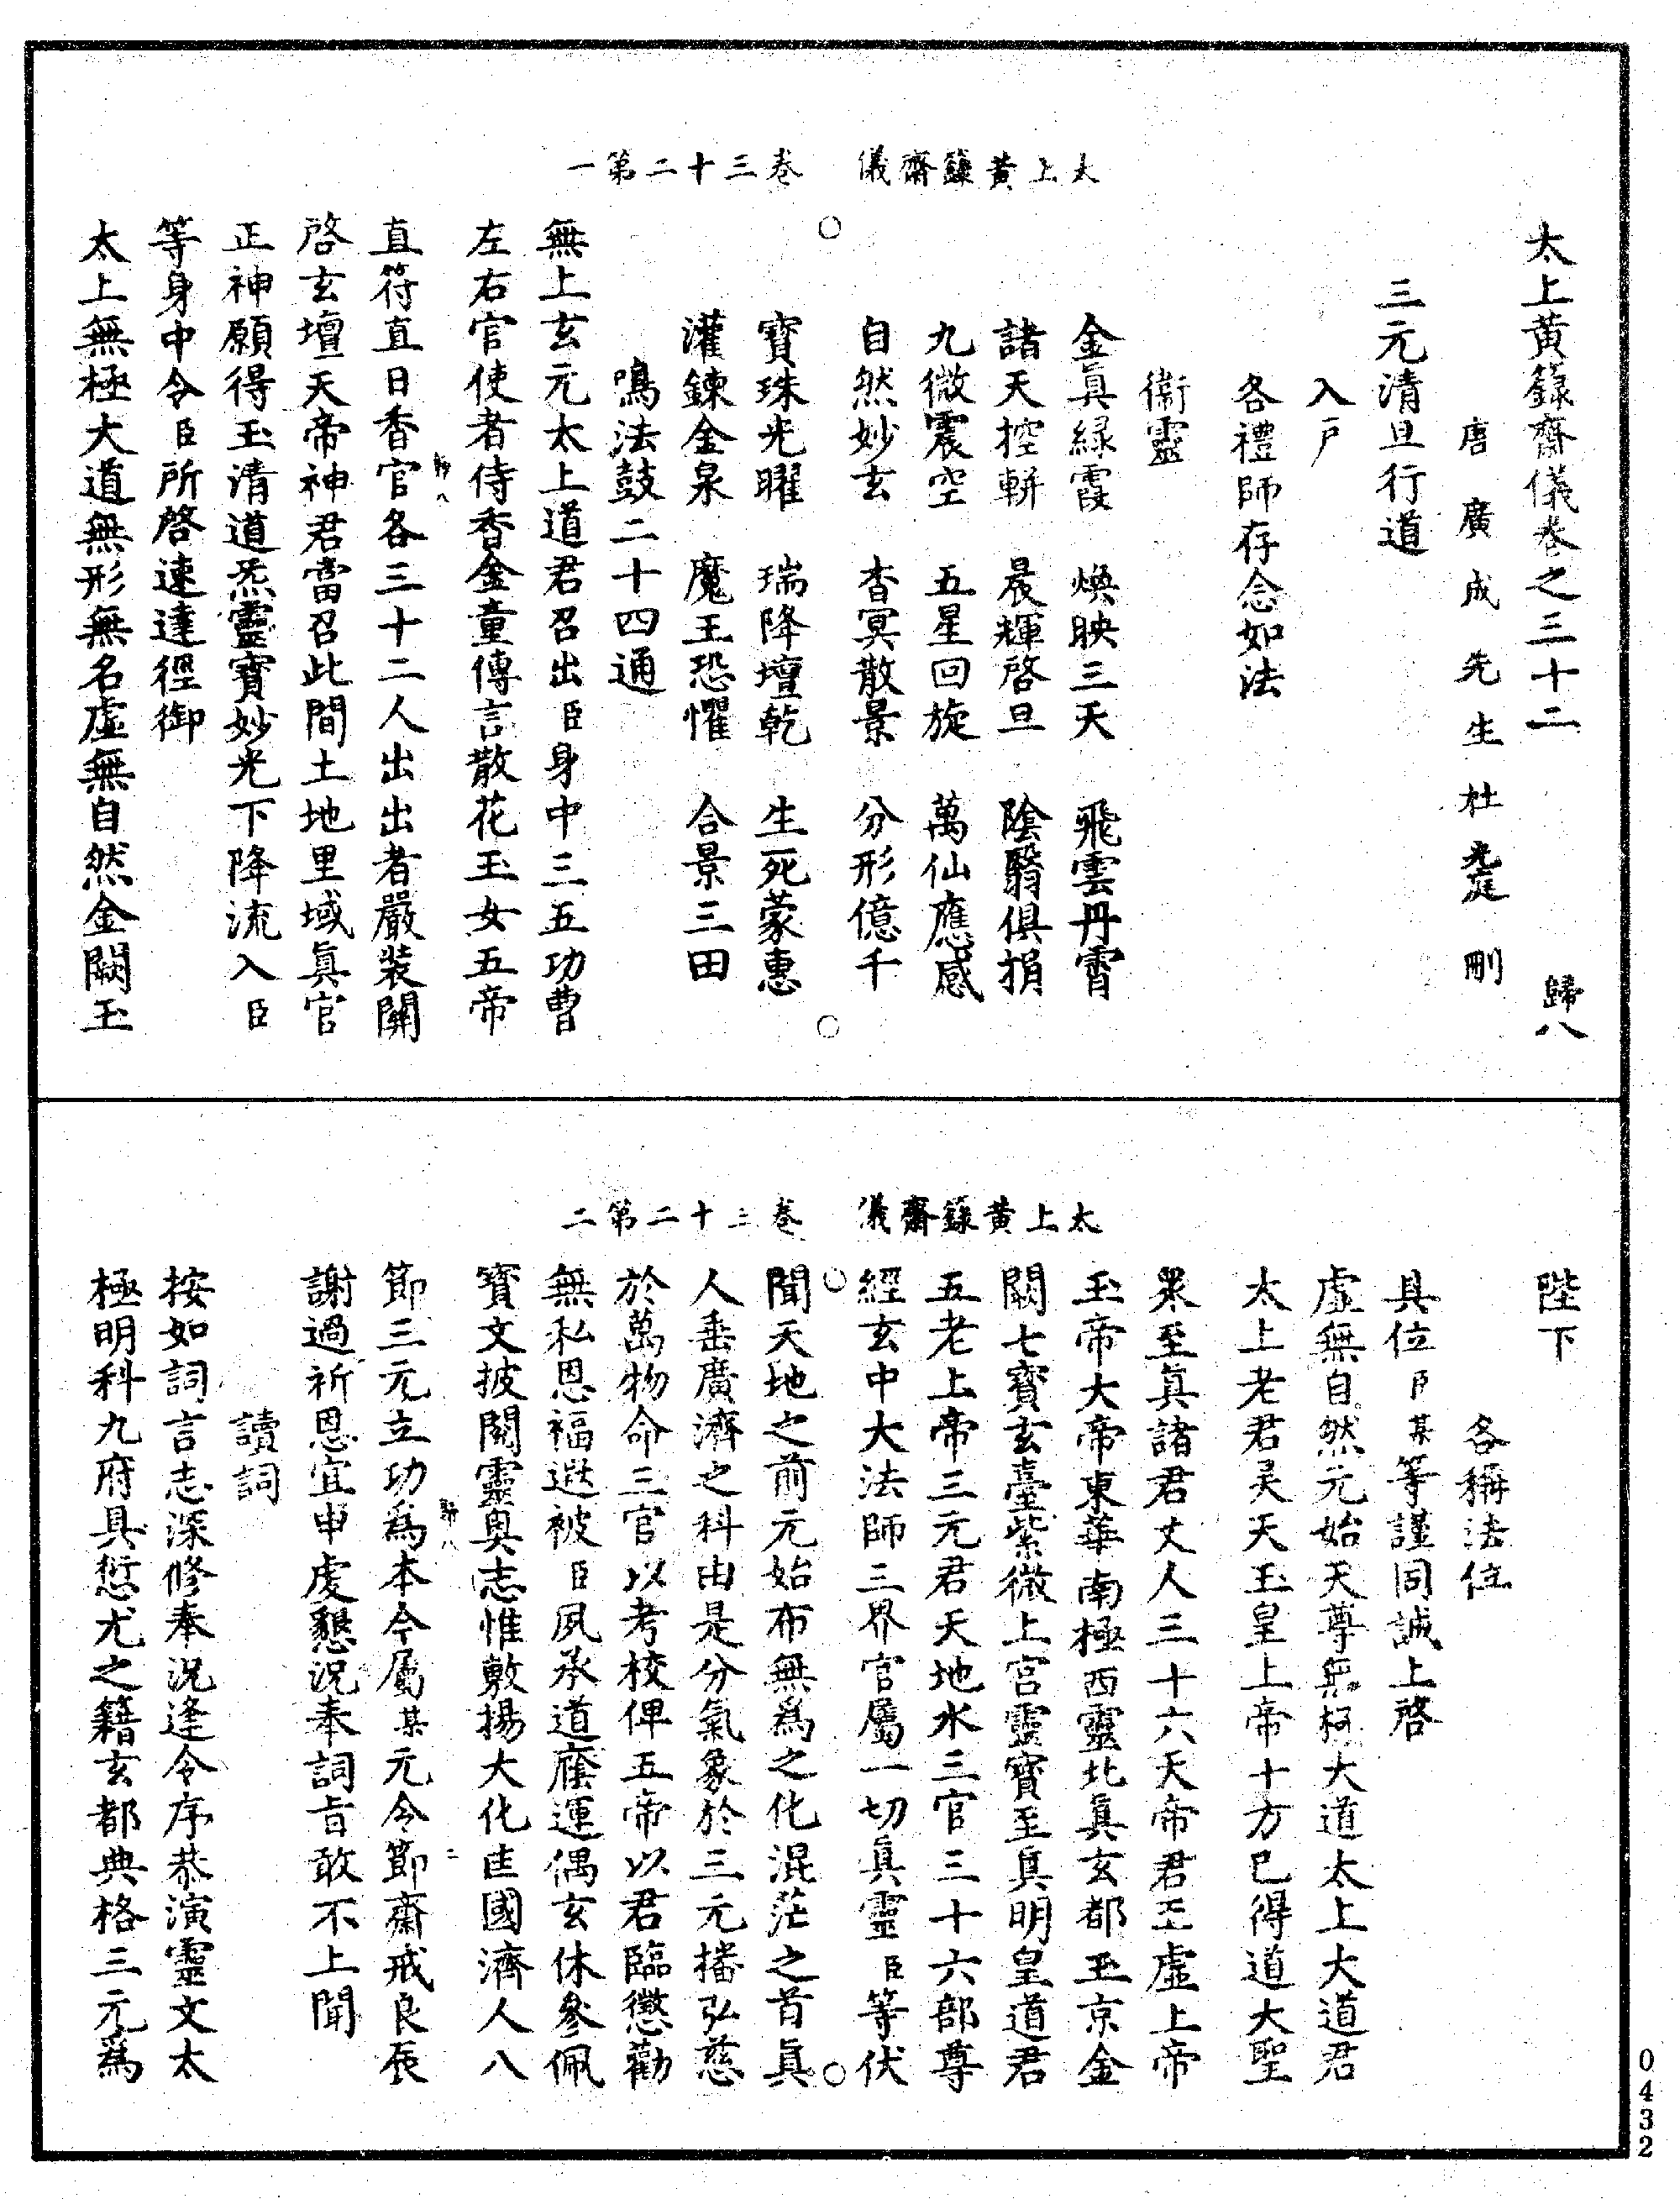 太上黃籙齋儀卷之三十二 歸八
唐廣成先生杜光庭刪
三元清旦行道
入戶
各禮師存念如法
衞靈
金眞緑霞 煥映三天 飛雲丹霄
諸天控軿 晨輝啓旦 陰翳俱捐
九微震空 五星回旋 萬仙應感
自然妙玄 杳冥散景 分形億千
太上黃籙齋儀 卷三十二第一
寶珠光曜 瑞降壇乾 生死蒙惠
灌鍊金泉 魔王恐懼 合景三田
鳴法鼓二十四通
無上玄元太上道君召出臣身中三五功曹
左右官使者侍香金童傳言散花玉女五帝
直符直日香官各三十二人出出者嚴裝關
啓玄壇天帝神君當召此間土地里域眞官
正神願得玉清道炁靈寶妙光下降流入臣
等身中令臣所啓速達徑御
太上無極大道無形無名虛無自然金闕玉
陛下
各稱法位
具位臣某等謹同誠上啓
虛無自然元始天尊無極大道太上大道君
太上老君昊天玉皇上帝十方已得道大聖
衆至眞諸君丈人三十六天帝君玉虛上帝
玉帝大帝東華南極西靈北眞玄都玉京金
闕七寶玄臺紫微上宮靈寶至眞明皇道君
五老上帝三元君天地水三官三十六部尊
經玄中大法師三界官屬一切眞靈臣等伏
太上黃籙齋儀 卷三十二第二
聞天地之前元始布無爲之化混茫之首眞
人垂廣濟之科由是分氣象於三元播弘慈
於萬物命三官以考校俾五帝以君臨懲勸
無私恩福遐被臣夙承道廕運偶玄休參佩
寶文披閱靈奥志惟敷揚大化匡國濟人八
節三元立功爲本今屬某元令節齋戒良辰
謝過祈恩宜申虔懇況奉詞旨敢不上聞
讀詞
按如詞言志深修奉況逢令序恭演靈文太
極明科九府具愆尤之籍玄都典格三元爲
0432